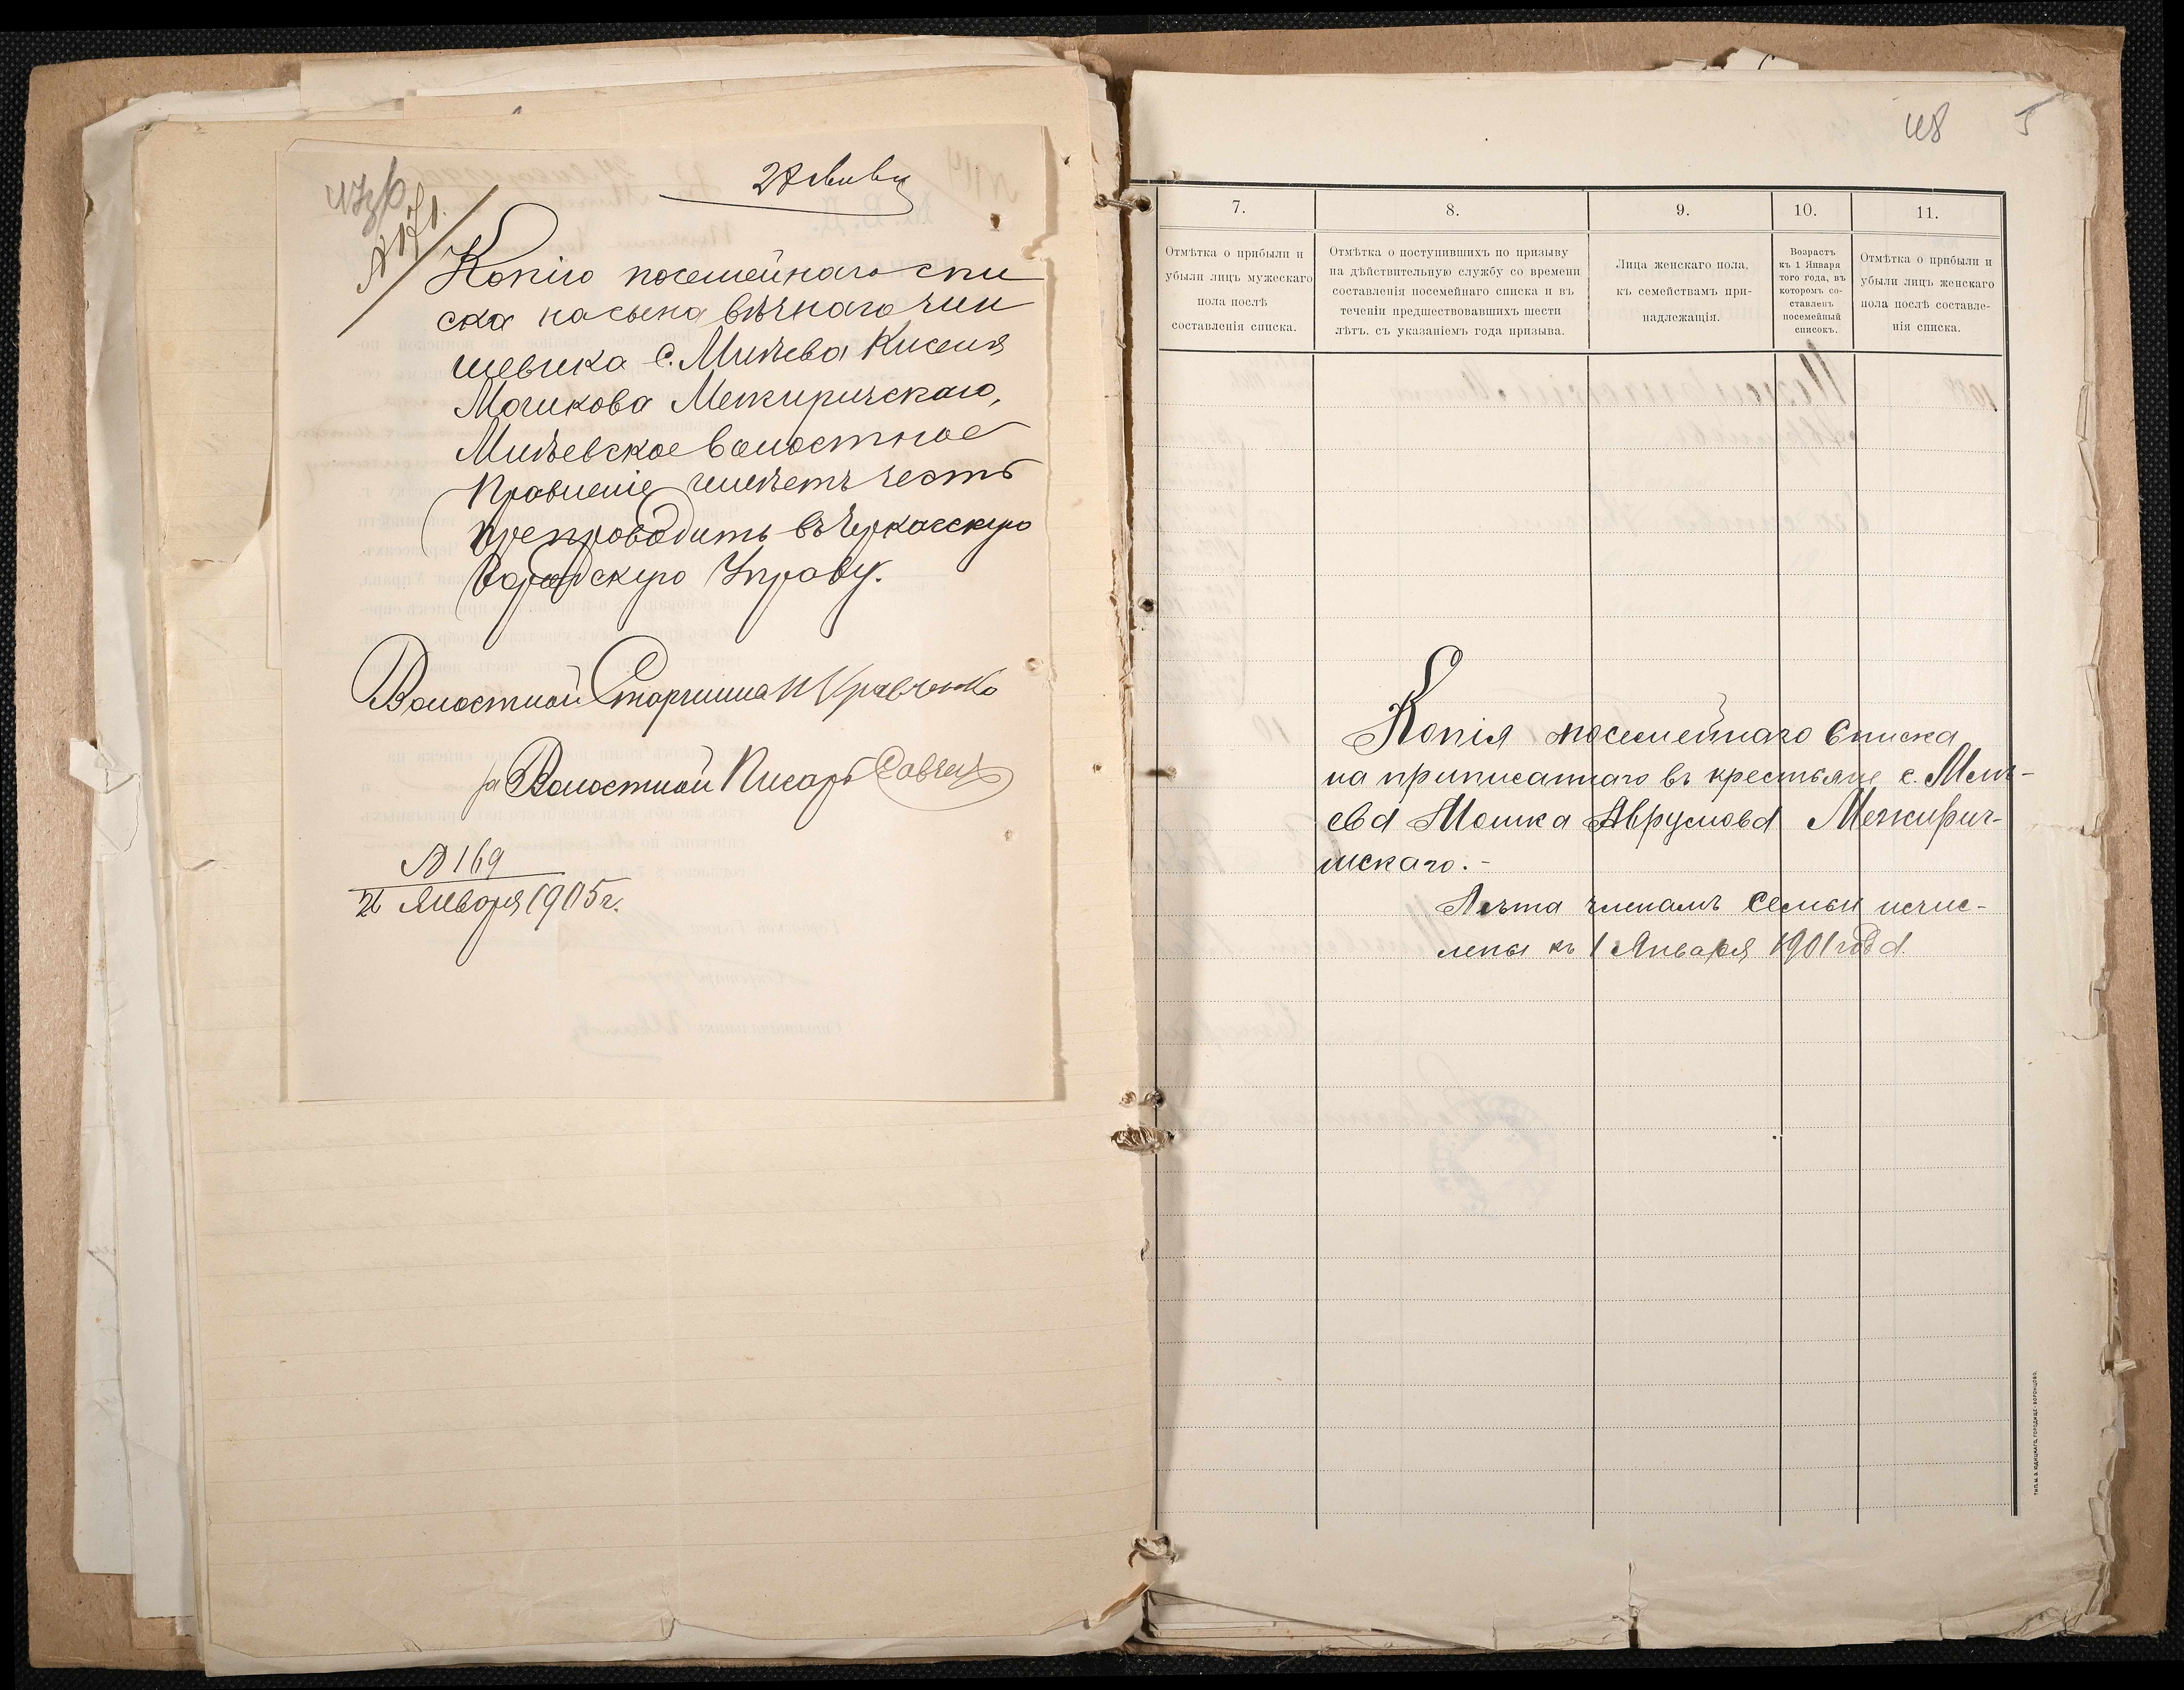 28 Янвь
№ 171.
Копію посемейнаго спи
ска на сына вѣчнаго чин
шевика с. Млѣева Кисиля
Мошкова Межиричскаго,
Млѣевское Волостное
Правленіе имѣетъ честь
препроводить въ Черкасскую
Городскую Управу.
Волостной Старшина И Кравченко
за Волостной Писарь Савчук
№ 169
26 Января 1905 г.
48
5
7.
8.
9.
10.
11.
Отмѣтка о прибыли и
убыли лицъ мужескаго
пола послѣ
составленія списка.
Отмѣтка о поступившихъ по призыву
на дѣйствительную службу со времени
составленія посемейнаго списка и въ
теченіи предшествовавшихъ шести
лѣтъ, съ указаніемъ года призыва.
Лица женскаго пола,
къ семействамъ при-
надлежащія.
Возрастъ
къ 1 Января
того года, въ
которомъ со-
ставленъ
посемейный
списокъ.
Отмѣтка о прибыли и
убыли лицъ женскаго
пола послѣ составле-
нія списка.
Копія посемейнаго Списка
на приписаннаго въ крестьяне с. Млѣ-
ева Мошка Аврумова Межирич-
скаго.-
Лѣта членамъ семьи исчис-
лены къ 1 Января 1901 года.
ТИП. М. Э. ЮДИЦКАГО, ГОРОДИЩЕ-ВОРОНЦОВО.